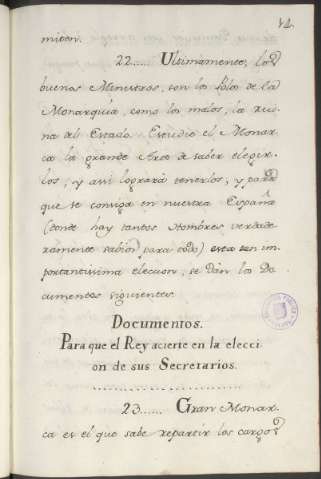 14.
miten.
22..... Ultimamente, los
buenos Ministros, son los Polos de la
Monarquia, como los malos, la rui-
na del Estado. Estudie el Monar
ca la grande Arte de saber elegir-
los, y assi lograrà tenerlos, y para
que se consiga en nuestra España
(donde hay tantos Hombres verdade
ramente sabios para todo) esta tan im
portantissima eleccion, se dàn los Do
cumentos siguientes.
Documentos.
Para que el Rey acierte en la elecci
on de sus Secretarios.
23...... Gran Monar-
ca es el que sabe repartir los cargos